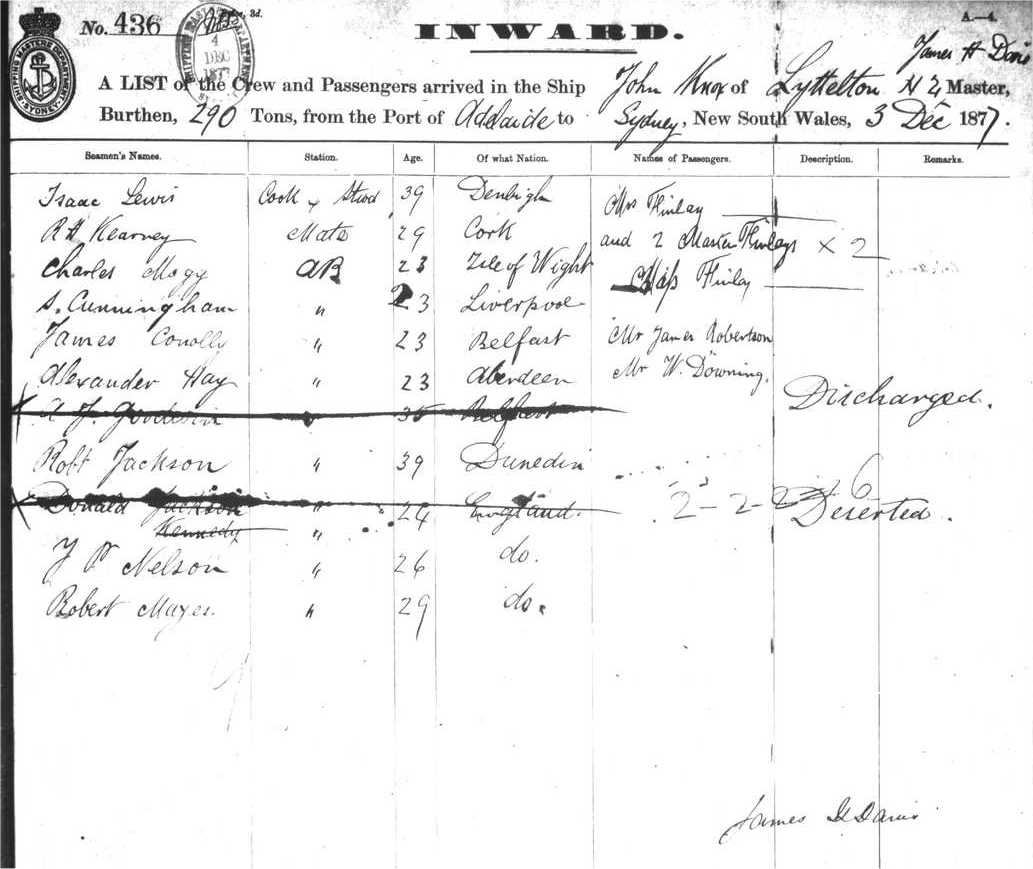 No. 436
INWARD.
A.—4.
4
DEC
SHIPPING MASTERS DEPARTMENT
SYDNEY
James H Davis
A LIST of the Crew and Passengers arrived in the Ship John Knox of Lyttelton N Z, Master,
Burthen, 290 Tons, from the Port of Adelaide to Sydney, New South Wales, 3 Dec 1877.
Seamen's Names. Station. Age. Of what Nation. Names of Passengers. Description. Remarks.
Isaac Lewis Cook & Stwd 39 Denbigh Mrs Finlay
R H Kearney Mate 29 Cork and 2 Master Finlays × 2
Charles Mogy AB 23 Isle of Wight Miss Finlay
S. Cunningham " 23 Liverpool
James Conolly " 23 Belfast Mr James Robertson
Alexander Hay " 23 Aberdeen Mr W. Downing.
A J. Goodwin " 35 Belfast Discharged.
Robt Jackson " 39 Dunedin
Donald Jackson " 24 England. 2-2-2 6 Deserted.
Kennedy "
J P Nelson " 26 do.
Robert Mayes " 29 do.
James H Davis